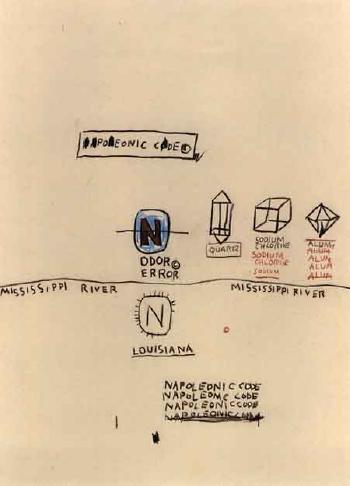 NAPOLEONIC CODE©
N
ODOR©
ERROR
QUARTZ
SODIUM
CHLORIDE
SODIUM
CHLORIDE
SODIUM
ALUM
ALUM
ALUM
ALUM
ALUM
MISSISSIPPI RIVER
MISSISSIPPI RIVER
N
LOUISIANA
NAPOLEONIC CODE
NAPOLEONIC CODE
NAPOLEONIC CODE
NAPOLEONIC CODE